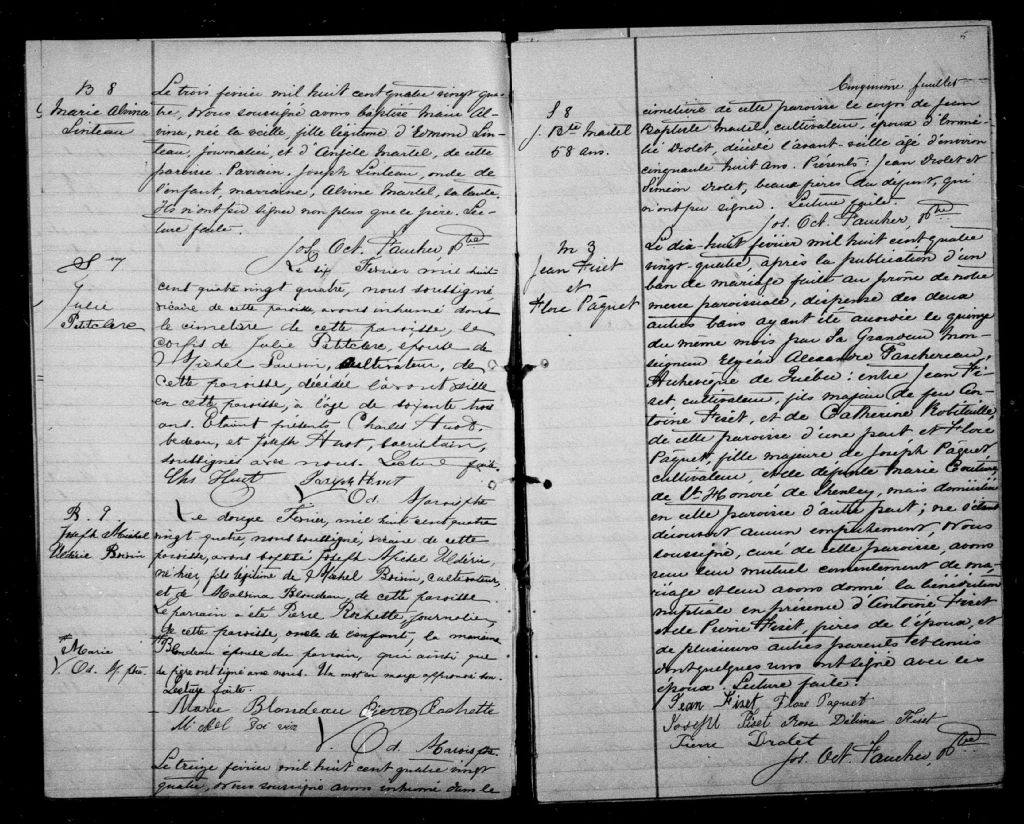 B 8
Marie Alvina
Linteau
Le trois février mil huit cent quatre vingt qua-
tre, Nous soussigné avons baptisé Marie Al-
vina, née la veille, fille légitime d'Edmond Lin-
teau, journalier, et d'Angèle Martel, de cette
paroisse. Parrain, Joseph Linteau, oncle de
l'enfant, marraine, Alvine Martel, sa tante.
Ils n'ont pu signer non plus que le père. Lec-
ture faite.
Jos. Oct. Faucher, Ptre
S 7
Julie
Petitclerc
Le six Février mil huit
cent quatre vingt quatre, nous soussigné,
vicaire de cette paroisse, avons inhumé dans
le cimetière de cette paroisse, le
corps de Julie Petitclerc, épouse de
Michel cultivateur, de
cette paroisse, décédée l'avant veille
en cette paroisse, à l'âge de soixante trois
ans. Etaient présents Charles Huot,
bedeau, et Joseph Huot, sacristain,
soussignés avec nous. Lecture faite.
Chs Huot Joseph Huot
V. Od. Marois ptre
B. 9
Joseph Michel
Uldéric Boivin
Le douze Février, mil huit cent quatre
vingt quatre, nous soussigné, vicaire de cette
paroisse, avons baptisé Joseph Michel Uldéric,
né hier, fils légitime de Michel Boivin, cultivateur,
et de Malvina Blondeau, de cette paroisse.
Le parrain a été Pierre Rochette, journalier,
de cette paroisse, oncle de l'enfant, la marraine
+ Marie
V. Od. M. ptre.
+ Blondeau épouse du parrain, qui ainsi que
le père ont signé avec nous. Un mot en marge approuvé bon.
Lecture faite.
Marie Blondeau Pierre Rochette
Michel Boi vin
V. Od. Marois ptre
Le treize février mil huit cent quatre vingt
quatre, Nous soussigné avons inhumé dans le
5
Cinquième feuillet
S 8
J. Bte Martel
58 ans.
cimetière de cette paroisse le corps de Jean
Baptiste Martel, cultivateur, époux d'Emmé-
lie Drolet, décédé l'avant-veille âgé d'environ
cinquante huit ans. Présents: Jean Drolet et
Siméon Drolet, beaux frères du défunt, qui
n'ont pu signer. Lecture faite.
Jos. Oct. Faucher, Ptre
M 3
Jean Fiset
et
Flore Pâquet
Le dix-huit février mil huit cent quatre
vingt-quatre, après la publication d'un
ban de mariage faite au prône de notre
messe paroissiale, dispense des deux
autres bans ayant été accordée le quinze
du même mois par Sa Grandeur Mon-
seigneur Elzéar Alexandre Taschereau,
Archevêque de Québec: entre Jean Fi-
set cultivateur, fils majeur de feu An-
toine Fiset, et de Catherine Robitaille
de cette paroisse d'une part et Flore
Pâquet, fille majeure de Joseph Pâquet
cultivateur, et de défunte Marie Couture
de St Honoré de Shenley, mais domiciliée
en cette paroisse d'autre part; ne s'étant
découvert aucun empêchement, Nous
soussigné, curé de cette paroisse, avons
reçu leur mutuel consentement de ma-
riage et leur avons donné la bénédiction
nuptiale en présence d'Antoine Fiset
et de Pierre Fiset, frères de l'époux, et
de plusieurs autres parents et amis
dont quelques uns ont signé avec les
époux. Lecture faite.
Jean Fiset Flore Paquet
Joseph Fiset Rose Délima Fiset
Pierre Drolet
Jos. Oct. Faucher, Ptre